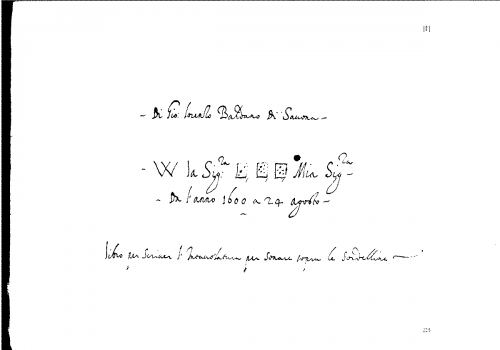 [1]
- Di Gio: Lorenzo Baldano di Savona -
- W la Sig.ra Mia Sig.ra -
- Da l'anno 1600 a 24 agosto -
libro per scriver l'Intavolatura per sonare sopra le sordelline